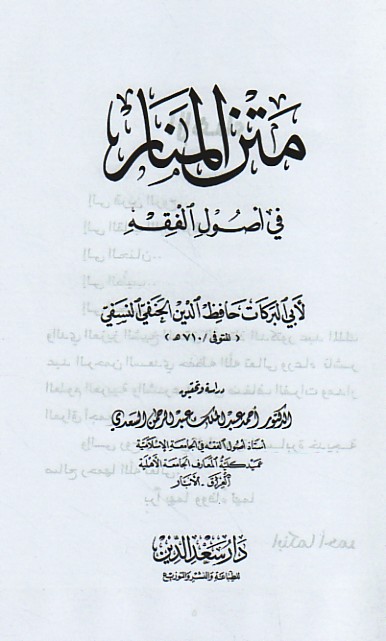 متن المنار
في أصول الفقه
لأبي البركات حافظ الدين الحنفي النسفي
( المتوفى / ٧١٠ هـ )
دراسة وتحقيق
الدكتور أحمد عبد الملك عبد الرحمن السعدي
أستاذ أصول الفقه في الجامعة الإسلامية
عميد كلية المعارف الجامعة الأهلية
العراق - الأنبار
دار سعد الدين
للطباعة والنشر والتوزيع